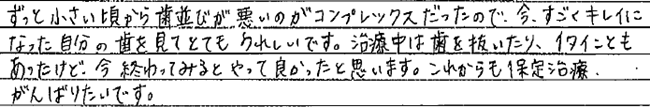 ずっと小さい頃から歯並びが悪いのがコンプレックスだったので、今、すごくキレイに
なった自分の歯を見てとてもうれしいです。治療中は歯を抜いたり、イタイことも
あったけど、今終わってみるとやって良かったと思います。これからも保定治療、
がんばりたいです。